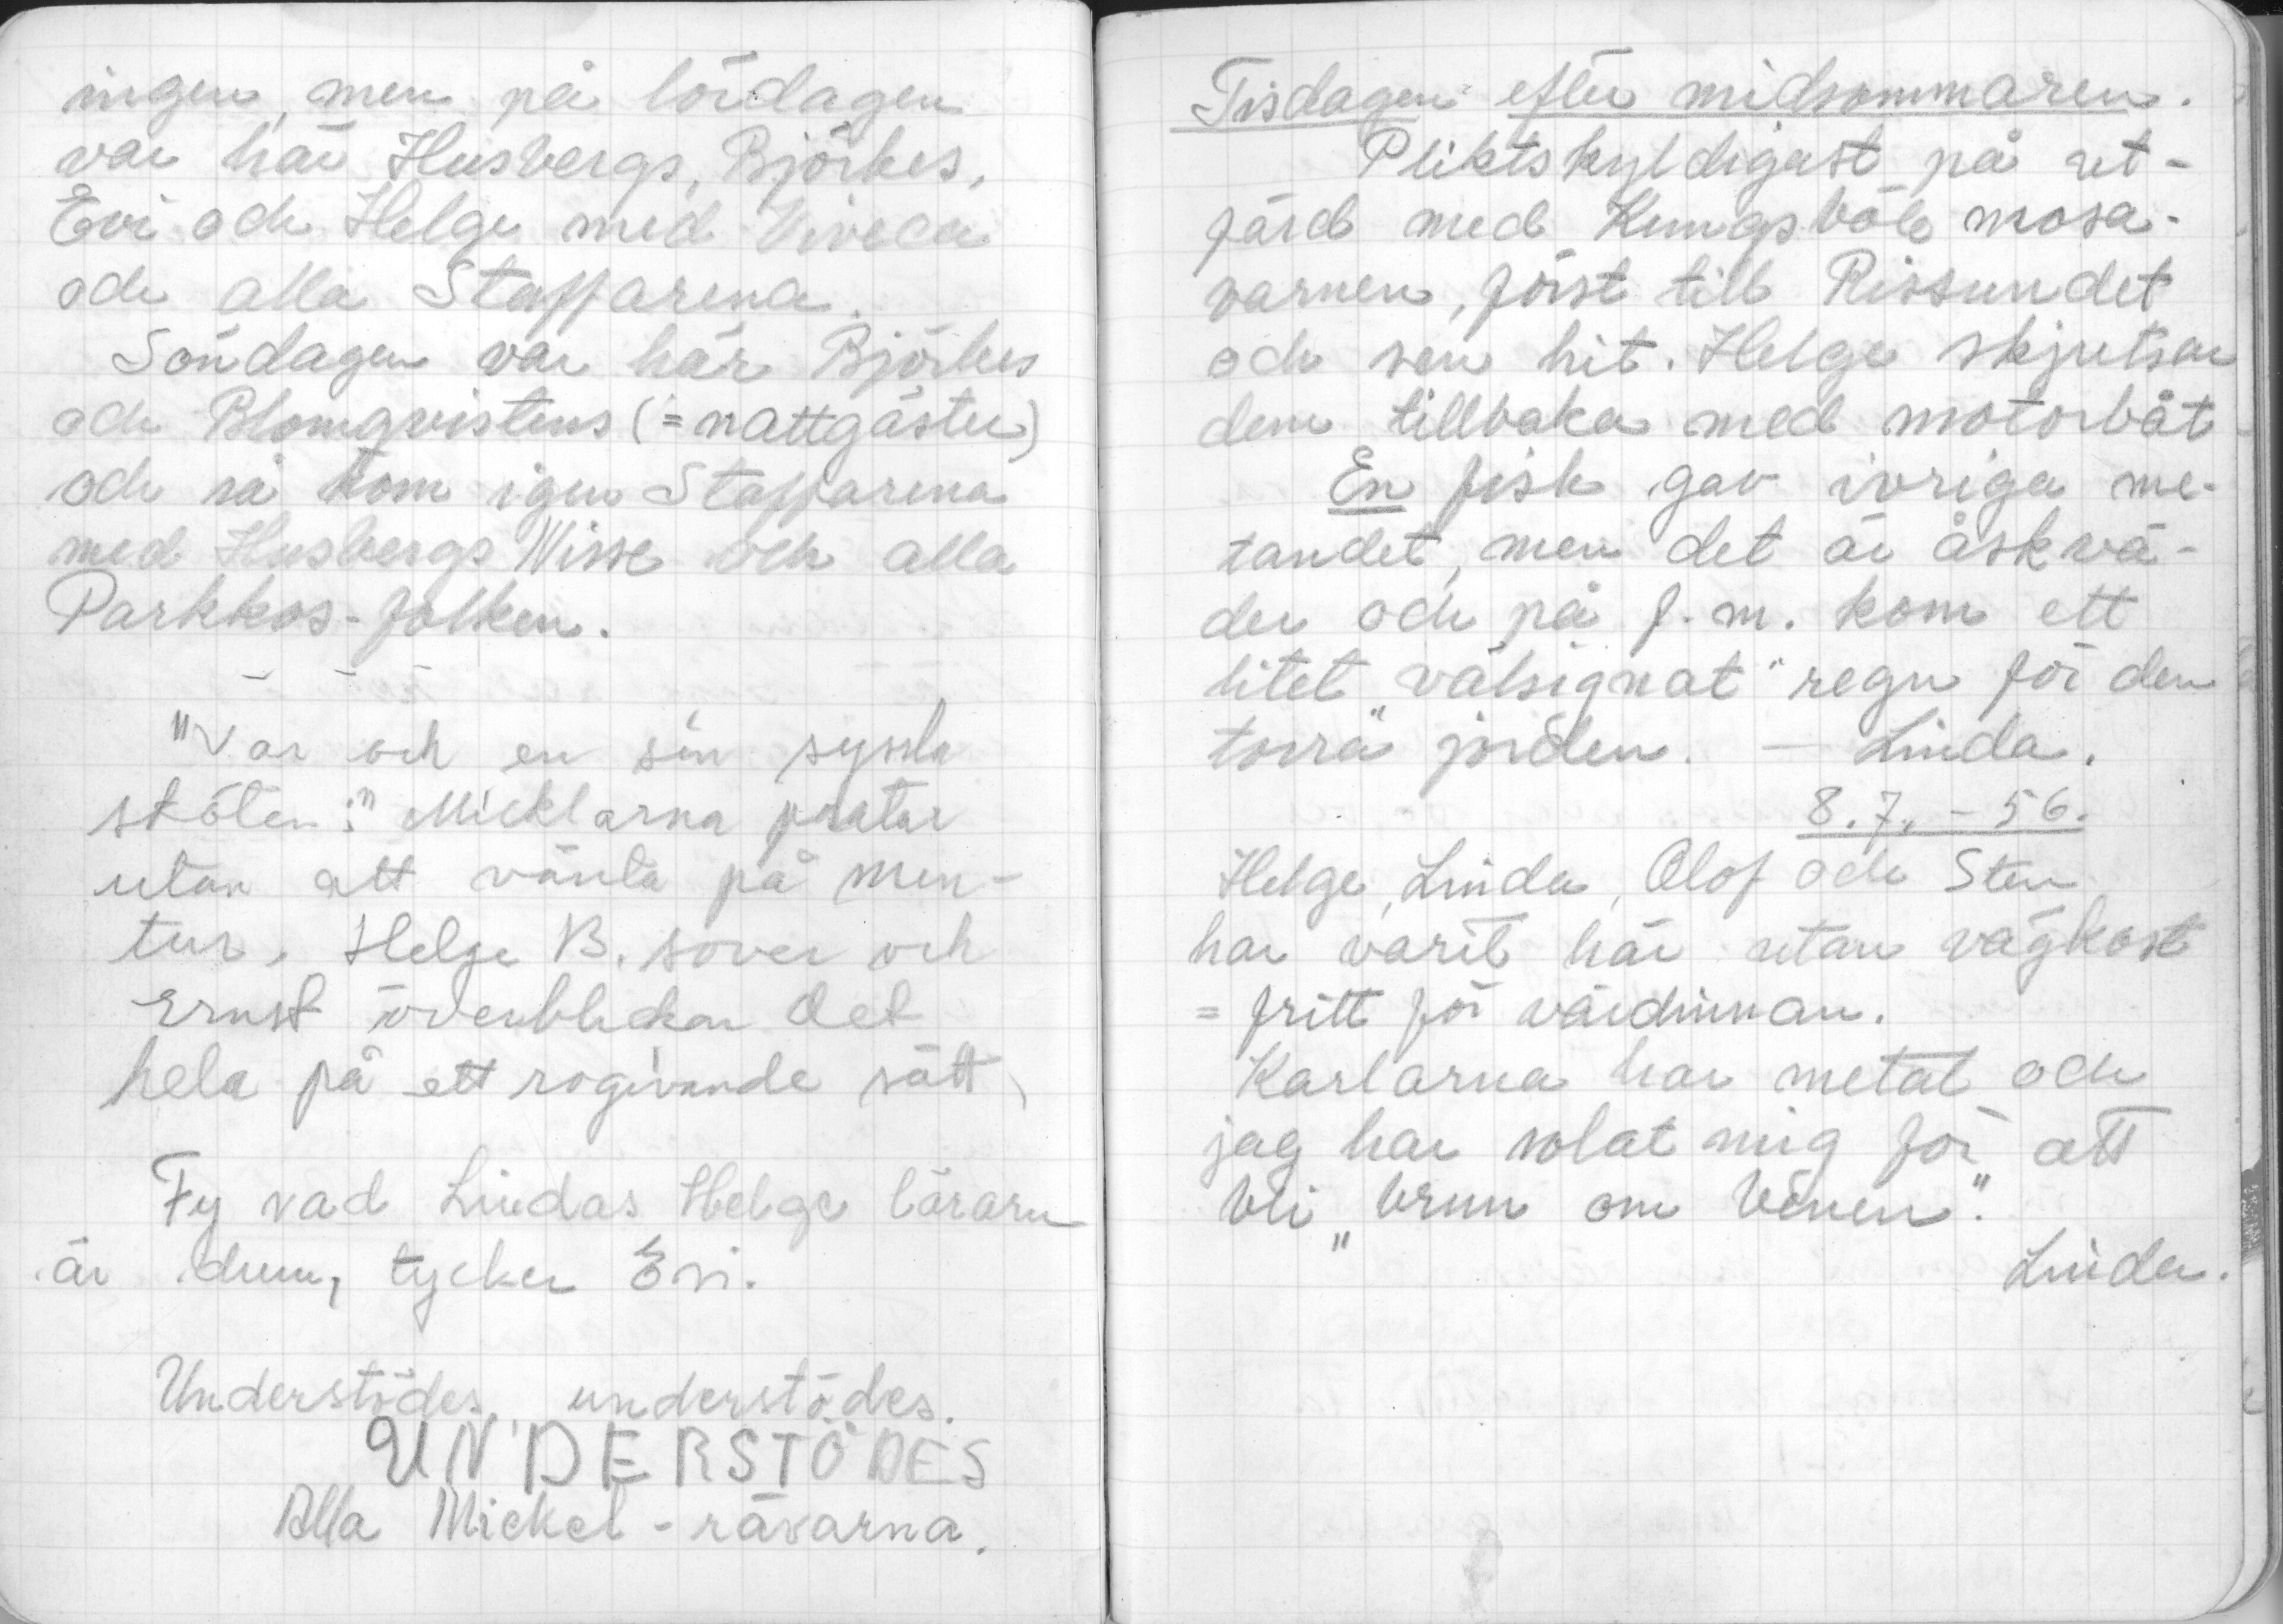 ingen, men på lördagen
var här Husbergs, Björkes,
Evi och Helge med Viveca
och alla Staffarena.
Söndagen var här Björkes
och Blomqvistens (= nattgäster)
och så kom igen Staffarena
med Husbergs Nisse och alla
Parkkos-folken.
"Var och en sin syssla
sköter:" Micklarna pratar
utan att vänta på men-
tur, Helge B. sover och
Ernst överblickar det
hela på ett rogivande sätt,
Fy vad Lindas Helge lärarn
är dum, tycker Evi.
Understödes, understödes.
UNDERSTÖDES
Alla Mickel-rävarna.
Tisdagen efter midsommaren.
Pliktskyldigast på ut-
färd med Kungsböle mosa-
varnen, först till Rissundet
och sen hit. Helge skjutsar
dem tillbaka med motorbåt
En fisk gav ivriga me-
tandet, men det är åskvä-
der och på f.m. kom ett
litet "välsignat" regn för den
"torra" jorden. – Linda.
8.7. – 56.
Helge, Linda, Olof och Sten
har varit här utan vägkost
= fritt för värdinnan.
Karlarna har metat och
jag har solat mig för att
bli "brun om benen".
Linda.